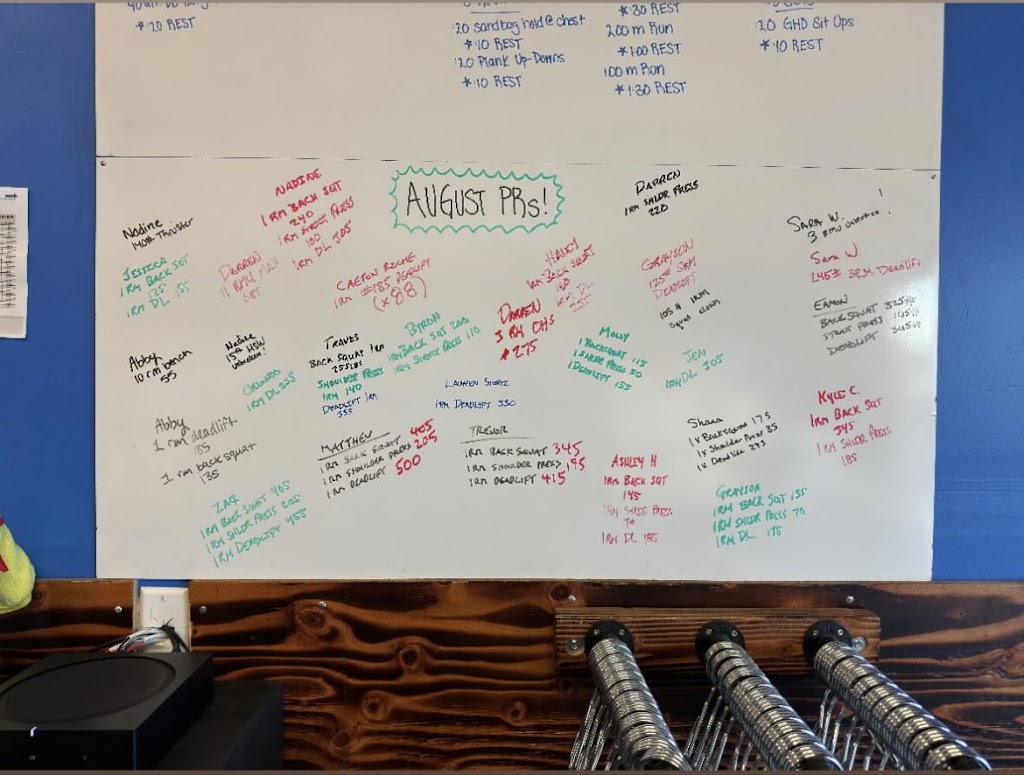 :20 REST
:20 sandbag hold @ chest
*:10 REST
:20 Plank Up-Downs
*:10 REST
*:30 REST
200 m Run
*1:00 REST
100 m Run
*1:30 REST
:20 GHD Sit Ups
*:10 REST
AUGUST PRs!
NADINE
1 RM BACK SQT
240
1 RM STRICT PRESS
100
1RM DL 305
DARREN
1RM SHLDR PRESS
220
Nadine
140# Thruster
JESSICA
1 RM BACK SQT
125
1 RM DL 155
DARREN
CAETON ROCHE
1RM
(x88)
HALEY
1RM BACK SQUAT
160
1RM DL
255
GRAYSON
125# 5RM
DEADLIFT
105# 1RM
Squat clean
SARA W.
Sara W.
245# 3RM Deadlift
EAMON
BACK SQUAT 325#
STRICT PRESS 145#
DEADLIFT 345#
Abby
10 rm bench
55
Nadine
15# HSW
unbroken!
ORLANDO
1RM DL 255
TRAVIS
BACK SQUAT 1RM
255LBS
SHOULDER PRESS
1RM 140
DEADLIFT 1RM
355
BYRON
1RM BACK SQT 200
1RM STRICT PRESS 110
DARREN
3 RM OHS
#275
MOLLY
1 BACKSQUAT 115
1 SHLDR PRESS 50
1 DEADLIFT 155
JEN
1RM DL 205
LAUREN
1RM DEADLIFT 330
Abby
1 rm deadlift
185
1 rm back squat
135
MATTHEW
1RM BACK SQUAT 405
1RM SHOULDER PRESS 205
1RM DEADLIFT 500
TREVOR
1RM BACK SQUAT 345
1RM SHOULDER PRESS 195
1RM DEADLIFT 415
Shara
1x Backsquat 175
1x Shoulder Press 85
1x Deadlift 275
KYLE C.
1RM BACK SQT
345
1RM SHLDR PRESS
185
ZAC
1RM BACK SQUAT 405
1RM SHLDR PRESS 205
1RM DEADLIFT 455
ASHLEY H
1RM BACK SQT
145
1RM SHLDR PRESS
70
1RM DL 185
GRAYSON
1RM BACK SQT 135
1RM SHLDR PRESS 70
1RM DL 175